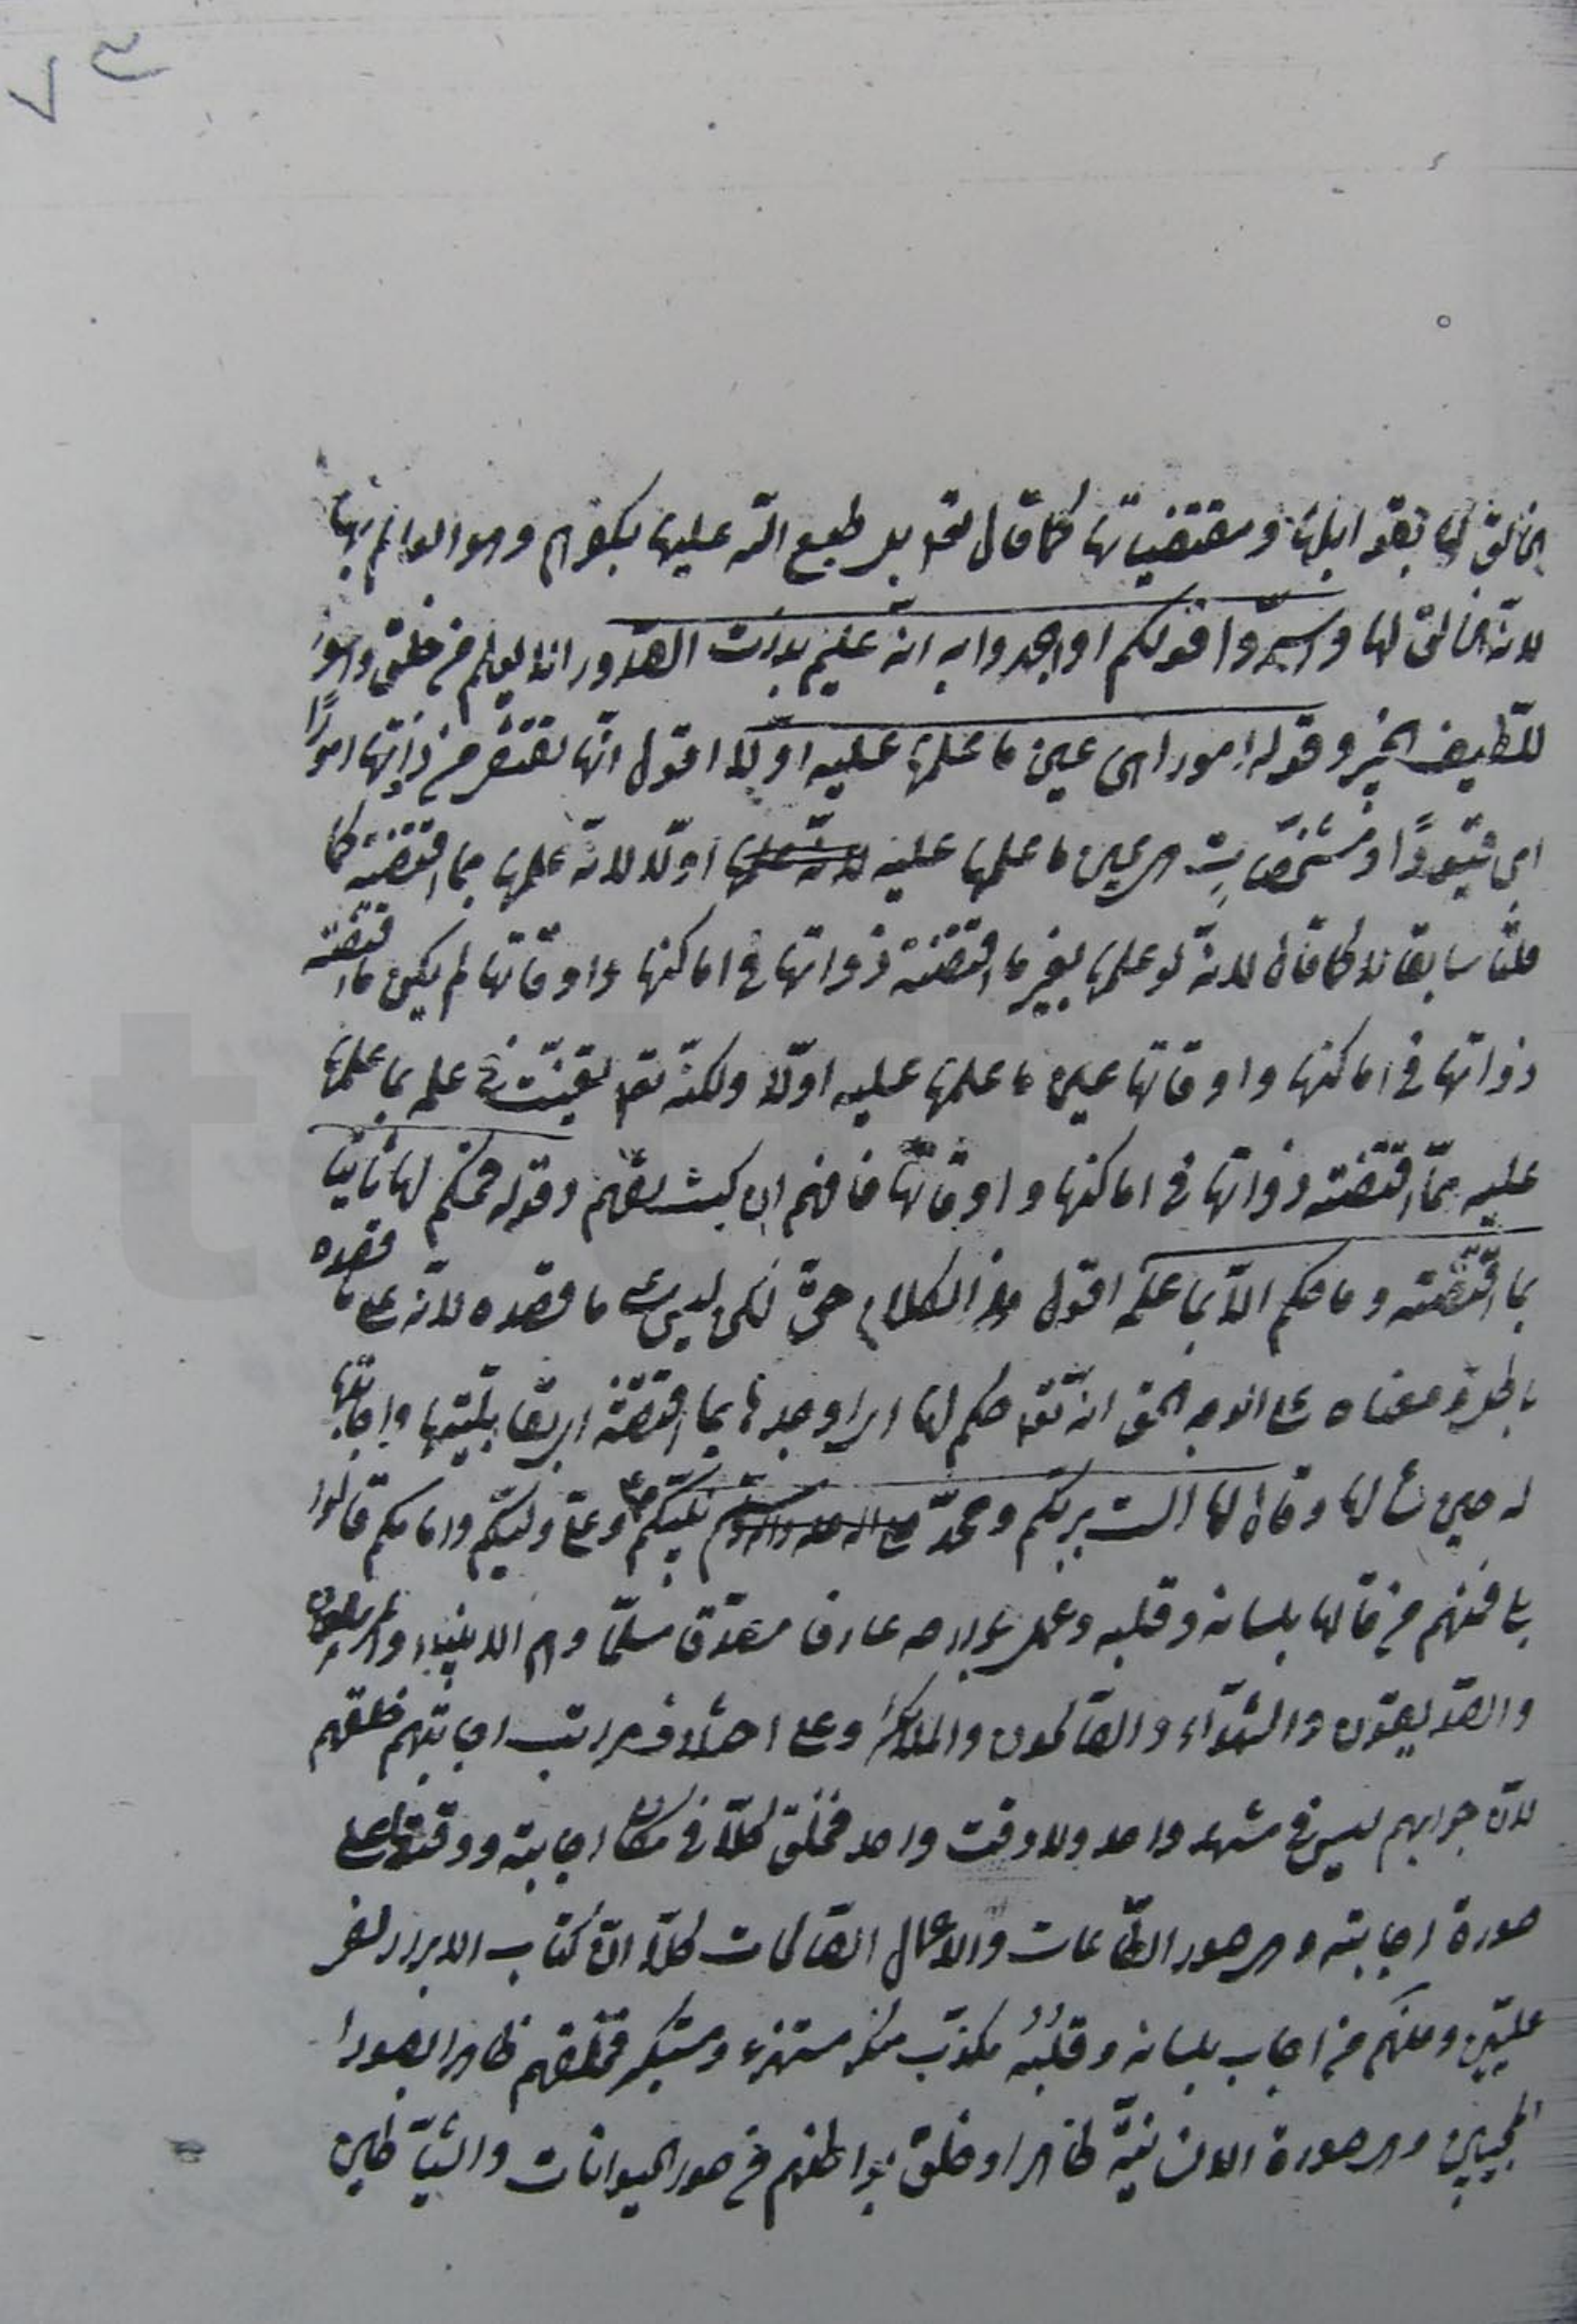 الخالق لها بقوابلها ومقتضياتها كما قال تعالى بل طبع الله عليها بكفرهم وهو العالم بها
لانه الخالق لها واسرّوا قولكم او اجهروا به انه عليم بذات الصدور الا يعلم من خلق وهو
اللّطيف الخبير وقوله امورا هى عين ما علمها عليه اوّلا اقول انّها تقتضى من ذاتها امورًا
اى قيودًا ومشخّصات هى عين ما علمها عليه اوّلا لانّه علمها بما اقتضته كما
قلنا سابقا لا كما قال لانّه لو علمها بغير ما اقتضته ذواتها فى اماكنها واوقاتها لم يكن ما اقتضته
ذواتها فى اماكنها واوقاتها عين ما علمها عليه اوّلا ولكنّه تعالى فى علمه بما علمها
عليه ممّا اقتضته ذواتها فى اماكنها واوقاتها فافهم ان كنت تفهم وقوله فحكم لها ثانيا
بما اقتضته وما حكم الّا بما علمه اقول هذا الكلام حقّ لكن ليس على ما قصده لانّه على ما قصده
باطل ومعناه على الوجه الحق انه تعالى حكم لها اى اوجدها بما اقتضته اى بقابليّتها واجابتها
له حين سألها وقال لها الست بربكم ومحمدّ نبيّكم وعلىّ وليّكم وامامكم قالوا
بلى فمنهم من قالها بلسانه وقلبه وعمل بجوارحه عارفا مصدّقا مسلّما وهم الانبياء والمرسلون
والصّديقون والشهدآء والصّالحون والملائكة وعلى اختلاف مراتب اجابتهم خلقهم
لانّ جوابهم ليس فى مشهد واحد ولا وقت واحد فخلق كلّا فى مكان اجابته ووقتها على
صورة اجابته وهى صور الطّاعات والاعمال الصّالحات كلّا انّ كتاب الابرار لفى
عليّين ومنهم من اجاب بلسانه وقلبُهُ مكذّب منكر مستهزء ومستكبر فخلقهم ظاهرا بصورة
المجيبين وهى صورة الانسانيّة ظاهرا وخلق بواطنهم من صور الحيوانات والشّياطين